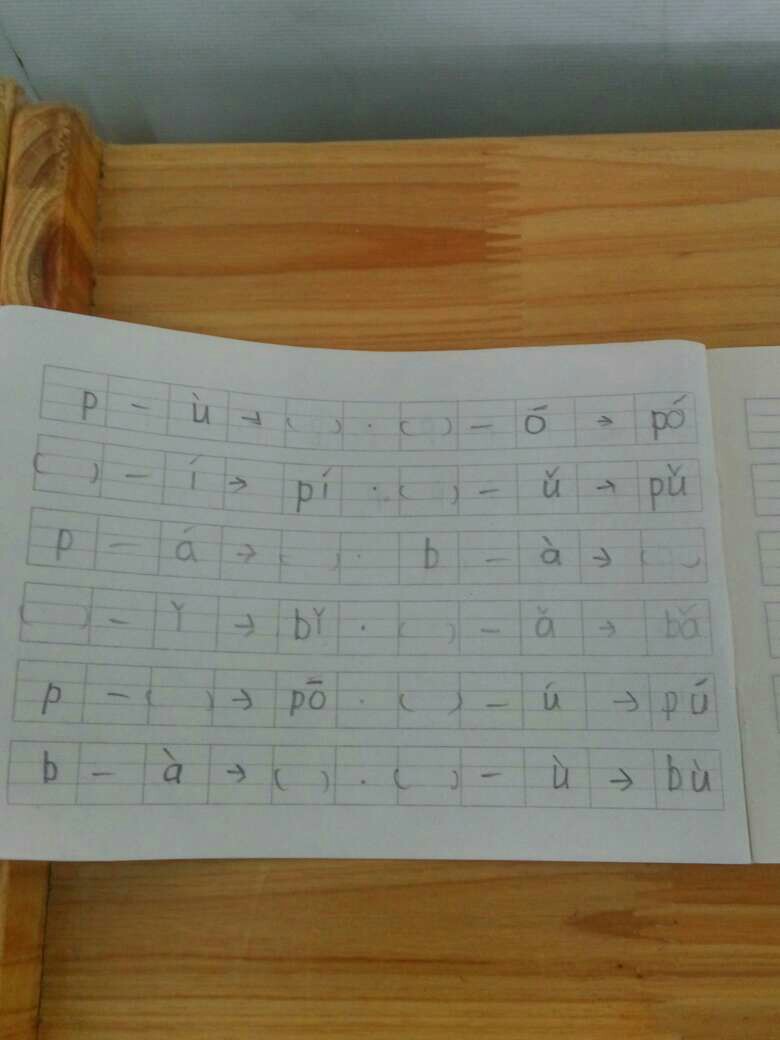 p - ù → ( ) · ( ) - ō → pó
( ) - í → pí · ( ) - ǔ → pǔ
p - á → ( ) · b - à → ( )
( ) - ǐ → bǐ · ( ) - ǎ → bǎ
p - ( ) → pō · ( ) - ú → pú
b - à → ( ) · ( ) - ù → bù